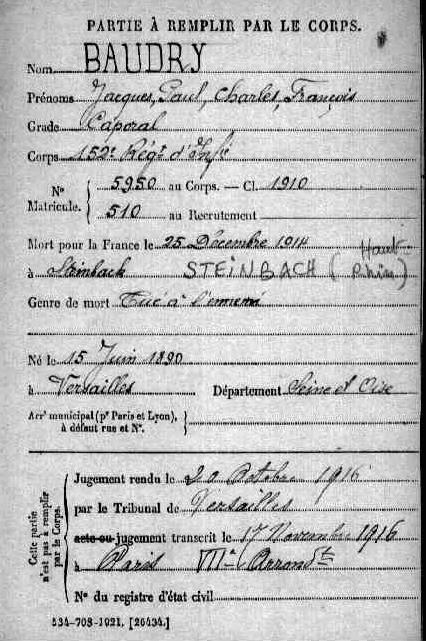 PARTIE À REMPLIR PAR LE CORPS.
Nom BAUDRY
Prénoms Jacques, Paul, Charles, François
Grade Caporal
Corps 152e Régt d'Infie
N° Matricule. { 5950 au Corps. — Cl. 1910
510 au Recrutement
Mort pour la France le 25 Décembre 1914
à Steinbach STEINBACH (Haut-Rhin)
Genre de mort Tué à l'ennemi
Né le 15 Juin 1890
à Versailles Département Seine et Oise
Arrt municipal (pr Paris et Lyon),
à défaut rue et N°.
Cette partie n'est pas à remplir par le Corps.
Jugement rendu le 20 Octobre 1916
par le Tribunal de Versailles
acte ou jugement transcrit le 17 Novembre 1916
à Paris Arrondt
N° du registre d'état civil
534-708-1921. [26434.]